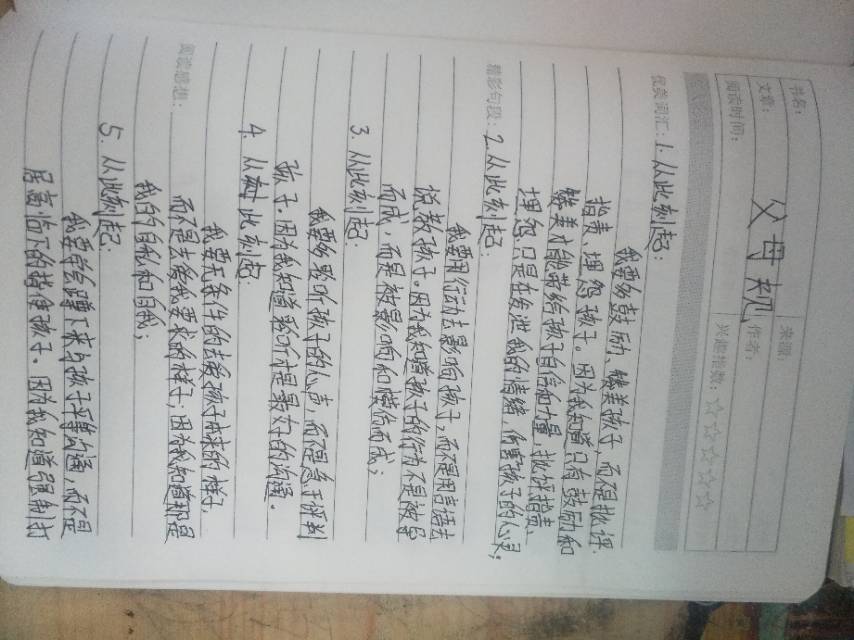 书名：
来源：
文章：
父母规
作者：
阅读时间：
兴趣指数：☆☆☆☆☆
优美词汇：1. 从此刻起：
我要多鼓励、赞美孩子，而不是批评、
指责、埋怨孩子。因为我知道只有鼓励和
赞美才能带给孩子自信和力量，批评指责、
埋怨只是在发泄我的情绪，伤害孩子的心灵；
精彩句段：2. 从此刻起：
我要用行动去影响孩子，而不是用言语去
说教孩子。因为我知道孩子的行为不是被导
而成，而是被影响和模仿而成；
3. 从此刻起：
我要多聆听孩子的心声，而不是急于评判
孩子。因为我知道聆听才是最好的沟通。
4. 从此刻起：
我要无条件的去爱孩子本来的样子，
而不是去爱我要求的样子；因为我知道那是
阅读感想：
我的自私和自我；
5. 从此刻起：
我要学会蹲下来与孩子平等沟通，而不是
居高临下的指使孩子。因为我知道强制打